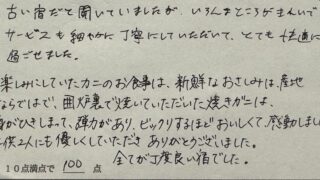 古い宿だと聞いていましたが、いろんなところがきれいで
サービスも細やかに丁寧にしていただいて、とても快適に
過ごせました。
楽しみにしていたカニのお食事は、新鮮なおさしみは、産地
ならではで、囲炉裏で焼いていただいた焼きガニは、
身がひきしまって、弾力があり、ビックリするほどおいしくて、感動しまし
子供2人にも優しくしていただきありがとうございました。
10点満点で 100 点
全てが丁度良い宿でした。